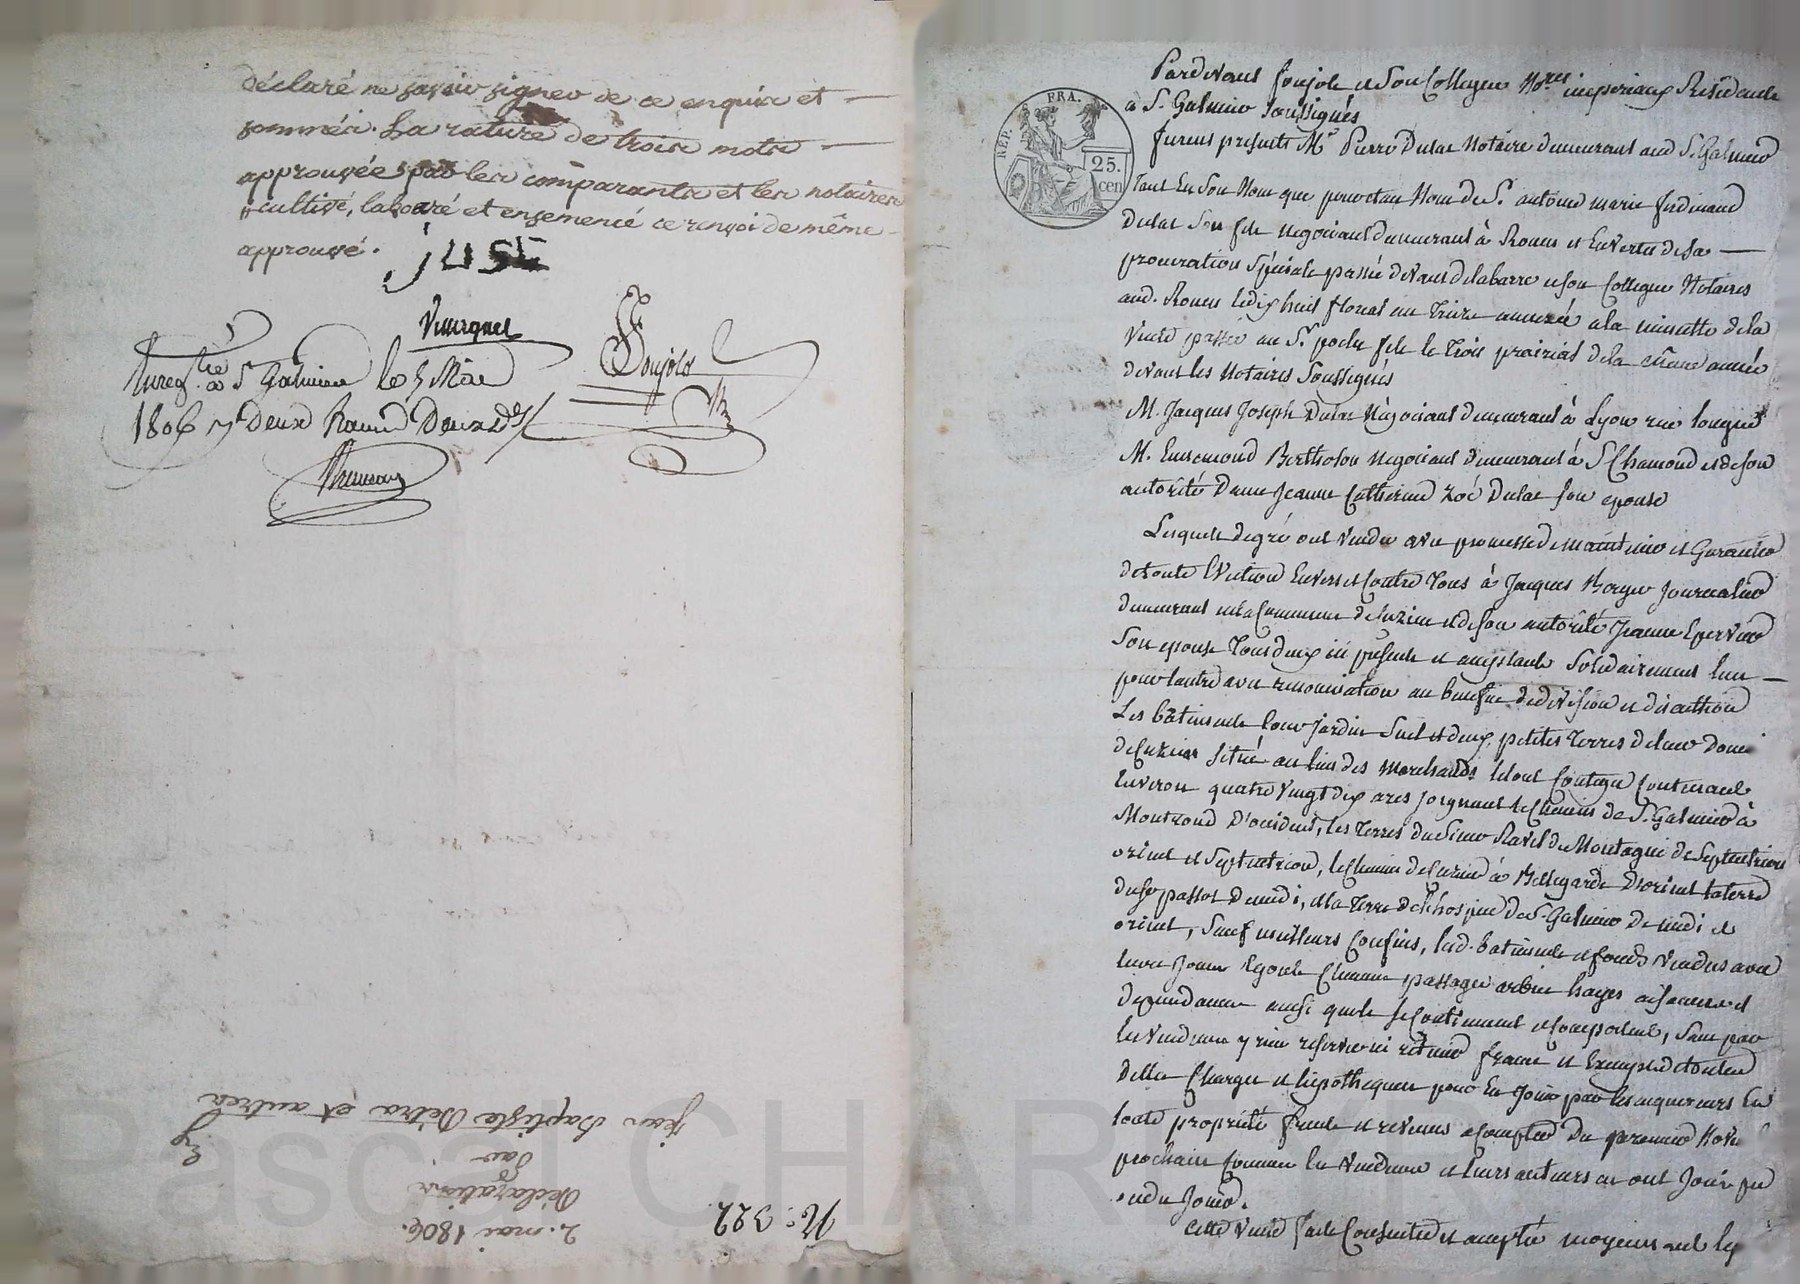 déclaré ne savoir signer de ce enquis et
sommés. La rature de trois mots
approuvée par les comparants et les notaires
cultivé, labouré et ensemencé ce renvoi de même
approuvé.
JUSE
Villerguet
Enreg.tré à St Galmier le 5 Mai
1806 Deux
Poujols
2. mai 1806.
Déclaration
par
jean Baptiste Détra et autres
N.o 322
REP. FRA.
25.
cen
Pardevant Poujols et Son Collegue No.res imperiaux Residants
à St. Galmier Soussignés
furent presents Mr. Pierre Dulac Notaire demeurant aud St. Galmier
tant En Son Nom que pour et au Nom de Sr. antoine marie ferdinand
Dulac Son fils negociant demeurant à Rouen et En vertu de Sa
procuration Spéciale passée devant delabarre et son Collegue Notaires
aud. Rouen le dix huit floreal an Treize annexée a la minutte de la
Vente passée au Sr. poche fils le Trois prairial de la même année
devant les Notaires Soussignés
M. Jacques Joseph Dulac Négociant demeurant à Lyon rue longue
M. Ennemond Bertholon negociant demeurant à St Chamond et de son
autorité Dame Jeanne Catherine Zoé Dulac son epouse
Lesquels de gré ont vendu avec promesse de maintenir et Garantir
de toute Eviction Envers et Contre Tous à Jacques Boyer Journalier
demeurant en la Commune de Cuzieu et de son autorité Jeanne Epervier
Son epouse Tous deux ici présents et acceptants Solidairement l'un
pour l'autre avec renonciation au benefice de division et discution
Les bâtiments Cour Jardin Suel et deux petites Terres de leur domaine
de Cuzieu Situé au lieu des Marchands le tout Contigu Contenant
Environ quatre Vingt dix ares joignant le Chemin de St. Galmier à
Montrond D'occident, les Terres du Sieur Ravel de Montagni de Septentrion
orient et Septentrion, le Chemin de Cuzieu à Bellegarde D'orient la terre
du Sr passot de midi, et la Terre de L'hospice de St. Galmier de midi et
orient, Sauf meilleurs Confins, lesd. batiments et fonds Vendus avec
leurs Jours Egouts Chemins passages arbres hayes aisances et
dependances ainsi qu'ils Se Contiennent et Comportent, Sans par
les Vendeurs y rien reserver ni retenir francs et Exempts de toutes
dettes Charges et hipotheques pour En Jouir par les acquereurs En
toute propriété fruits et revenus a Compter du
prochain Comme les Vendeurs et leurs auteurs en ont Joui pu
ou du Jouir.
Cette Vente faite Consentie et acceptée moyennant le
Pascal CHAR